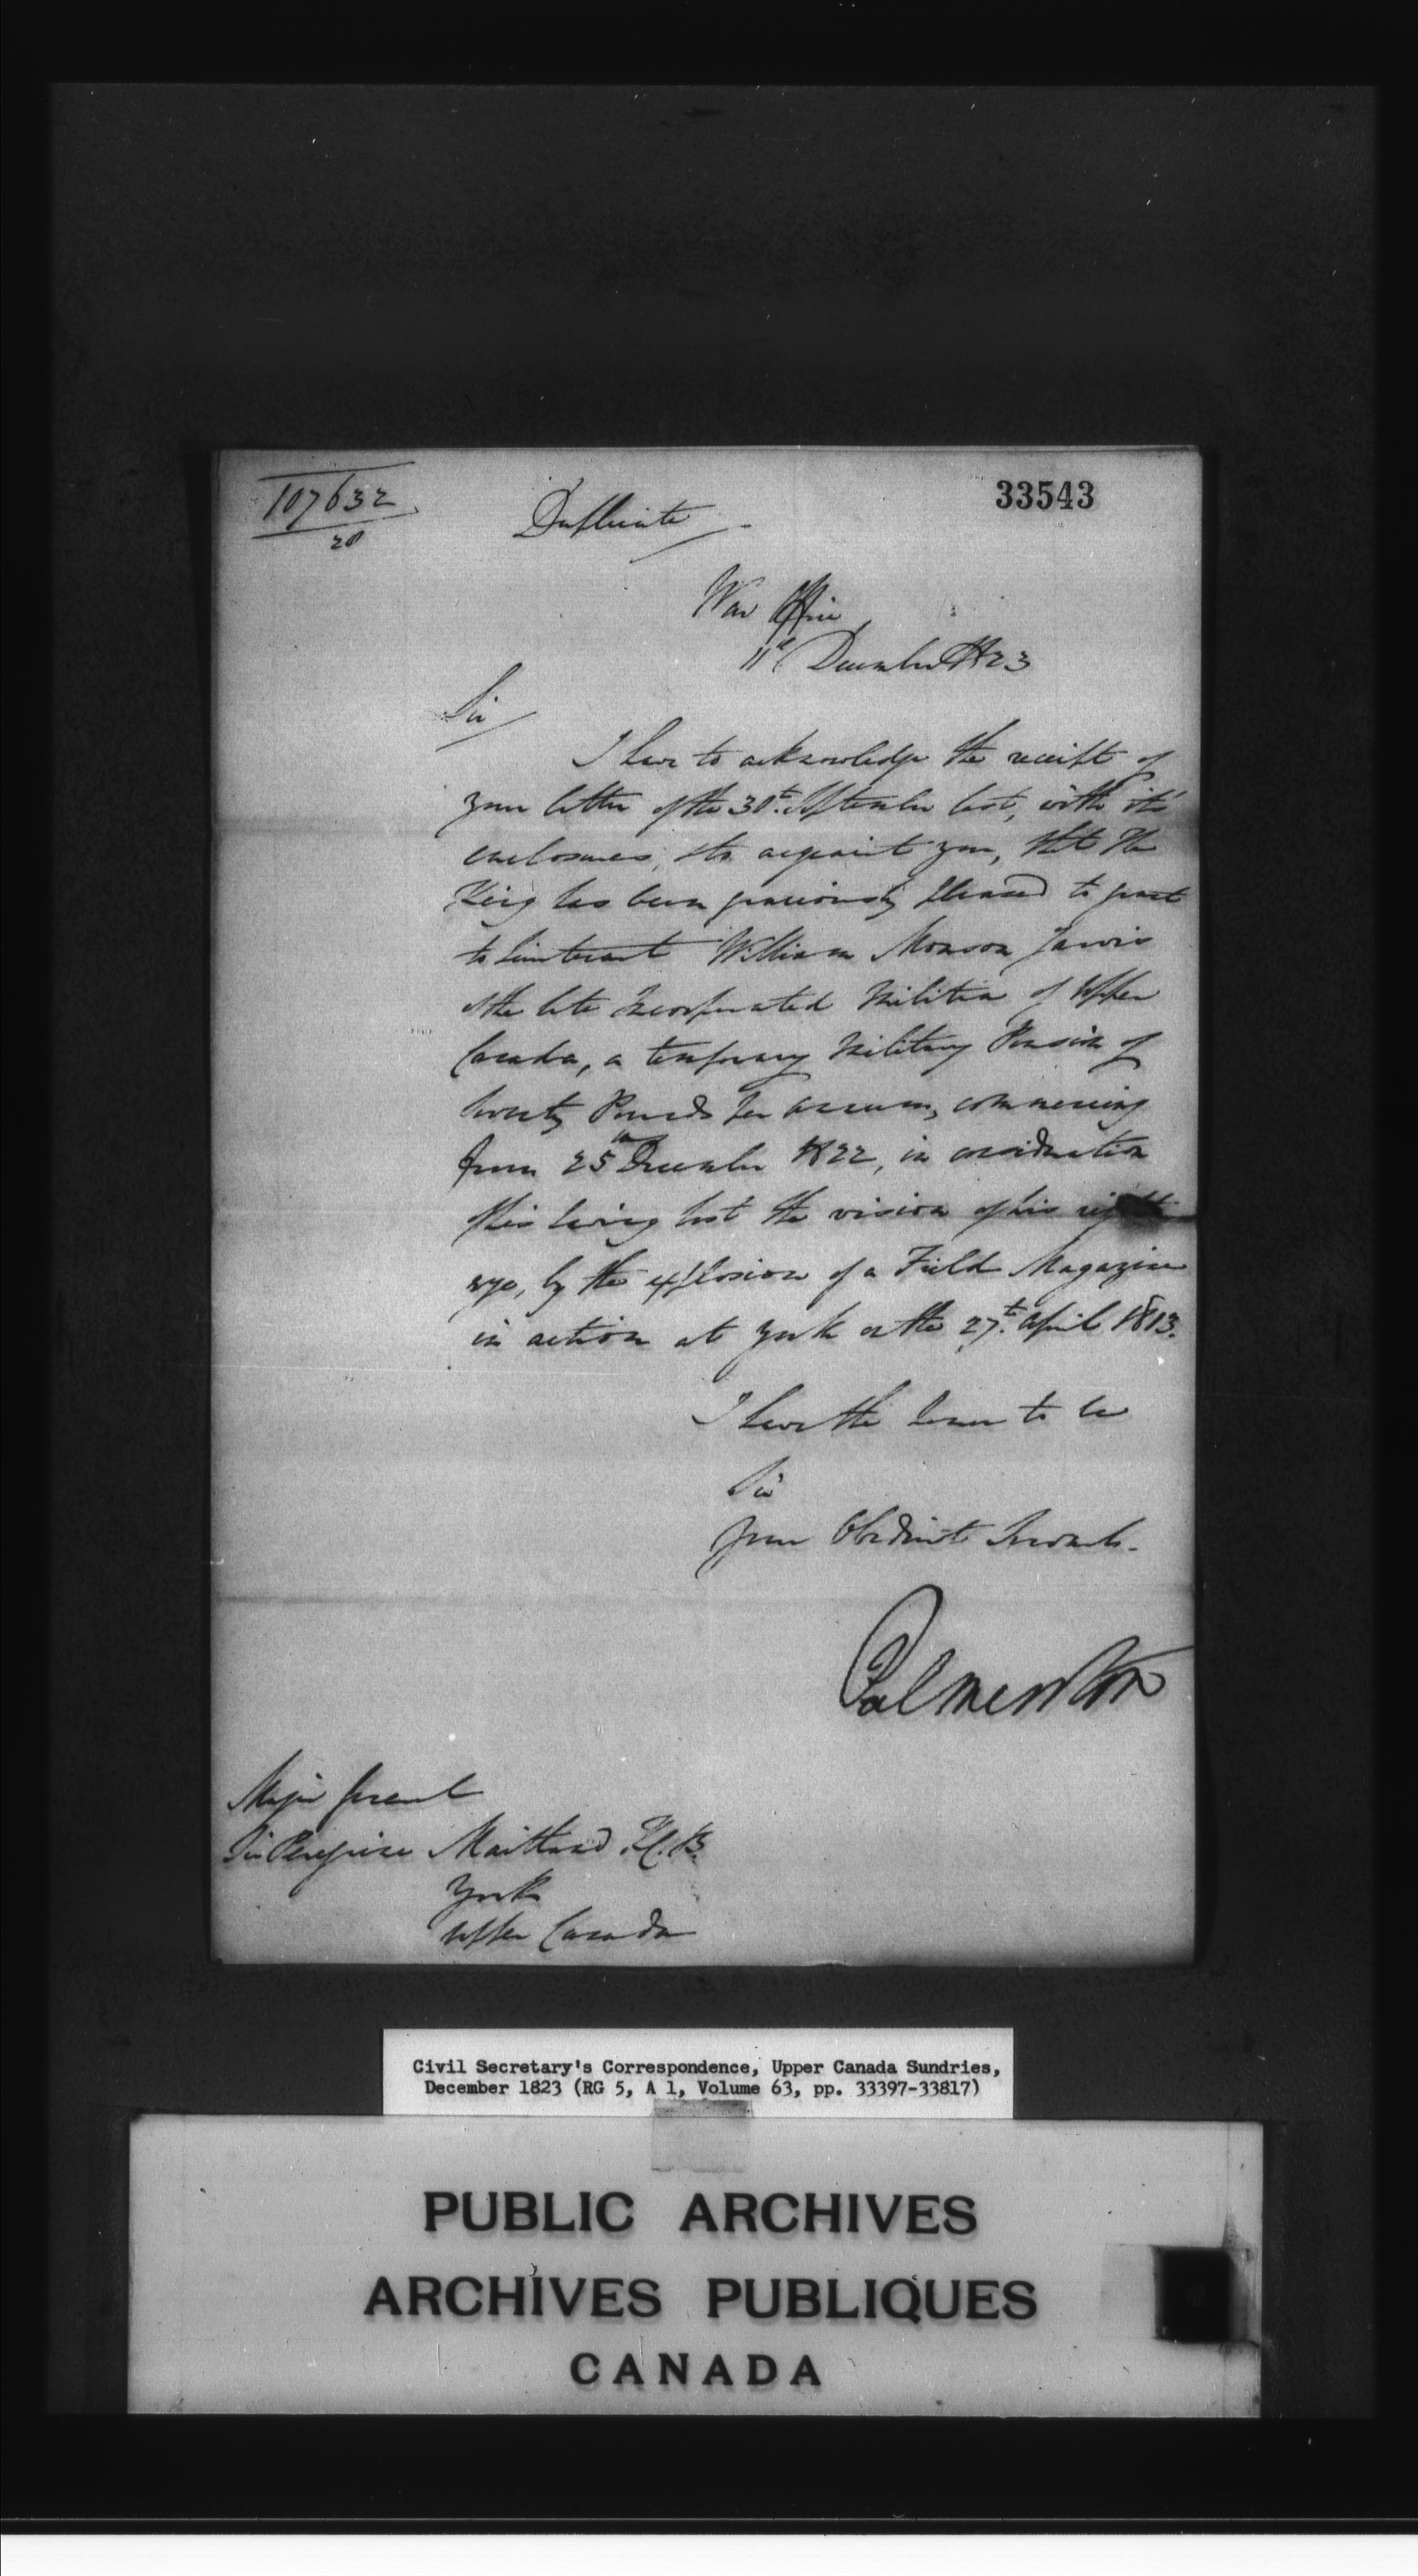 107632
20
33543
Duplicate
War Office
11th December 1823
Sir
I have to acknowledge the receipt of
your letter of the 30th September last, with it's
enclosures, & to acquaint you, that The
King has been graciously pleased to grant
to Lieutenant William Monson Jarvis
of the late Incorporated Militia of Upper
Canada, a temporary Military Pension of
twenty Pounds per annum, commencing
from 25th December 1822, in consideration
of his having lost the vision of his right
eye, by the explosion of a Field Magazine
in action at York on the 27th April 1813.
I have the honor to be
Sir
Your Obedient Servant.
Palmerston
Major General
Sir Peregrine Maitland K.C.B.
York
Upper Canada
Civil Secretary's Correspondence, Upper Canada Sundries,
December 1823 (RG 5, A 1, Volume 63, pp. 33397-33817)
PUBLIC ARCHIVES
ARCHIVES PUBLIQUES
CANADA